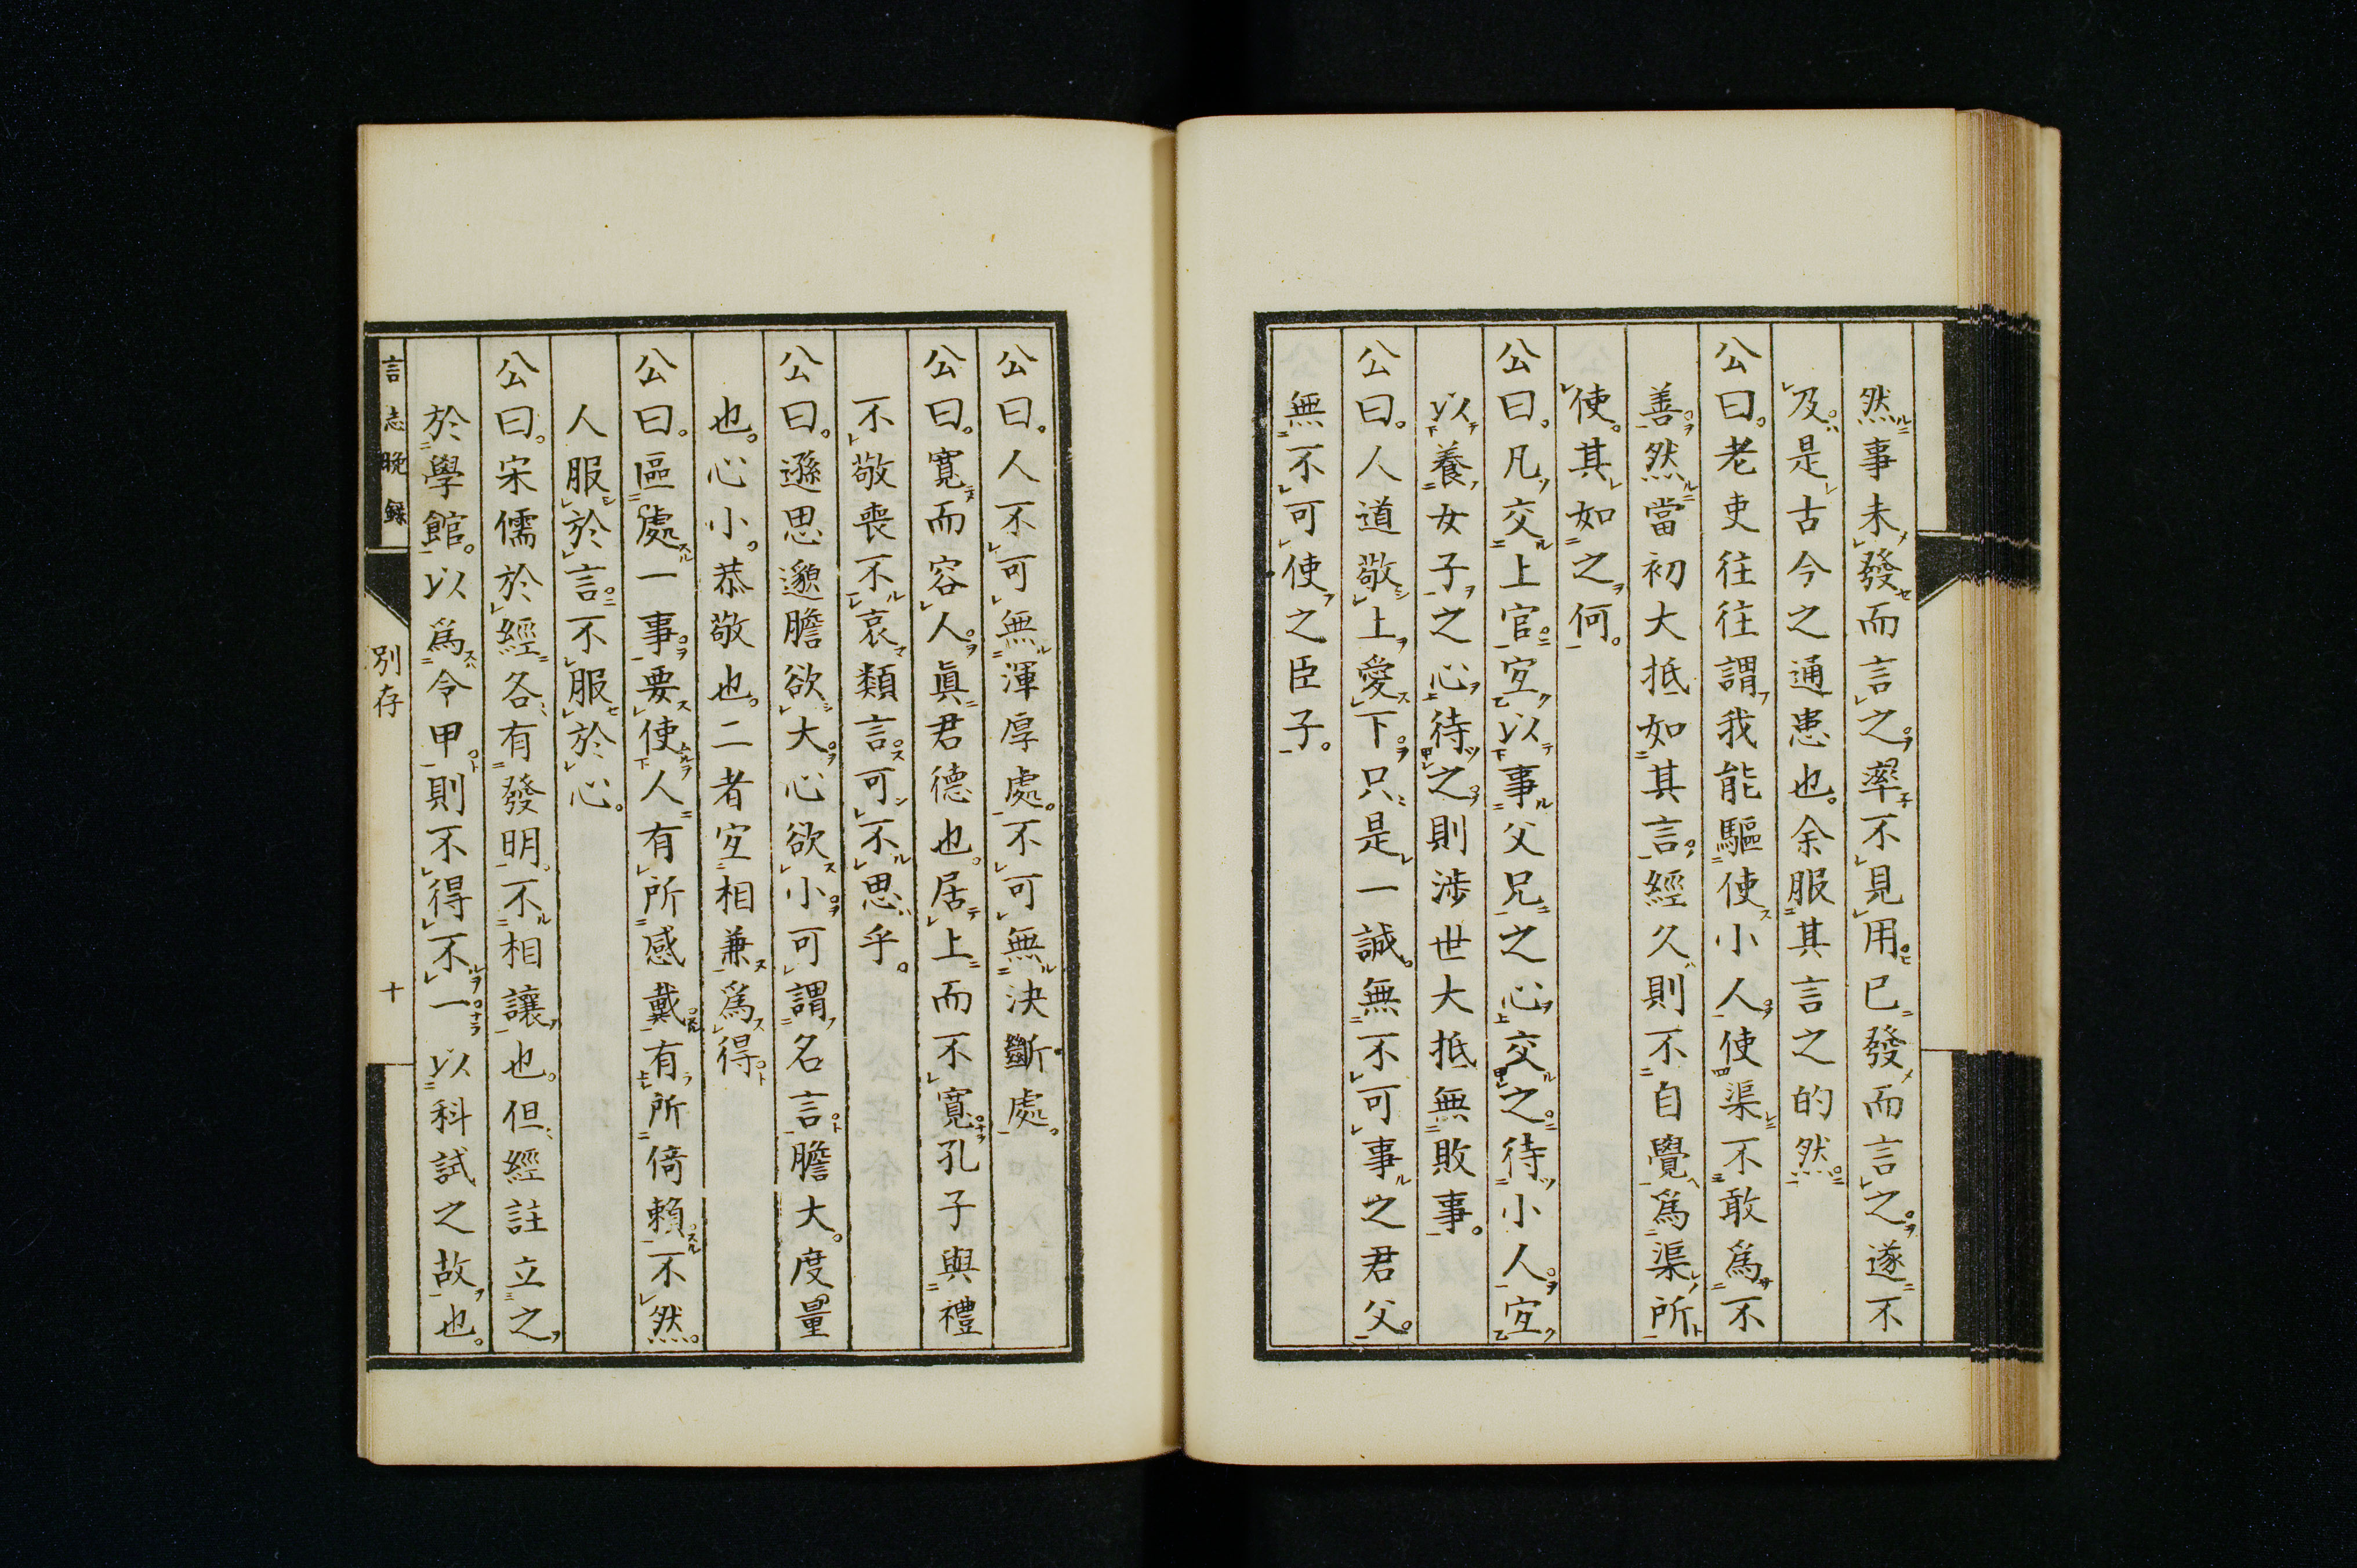 然事未發而言之。率不見用。已發而言之。遂不
及。是古今之通患也。余服其言之的然。
公曰。老吏往往謂我能驅使小人。使渠不敢爲不
善。然當初大抵如其言。經久則不自覺爲渠所
使。其如之何。
公曰。凡交上官。宜以事父兄之心交之。待小人。宜
以養女子之心待之。則涉世大抵無敗事。
公曰。人道敬上愛下。只是一誠。無不可事之君父。
無不可使之臣子。
公曰。人不可無渾厚處。不可無決斷處。
公曰。寬而容人。眞君德也。居上而不寬。孔子與禮
不敬喪不哀類言。可不思乎。
公曰。遜思邈膽欲大。心欲小。可謂名言。膽大。度量
也。心小。恭敬也。二者宜相兼爲得。
公曰。區處一事。要使人有所感戴。有所倚賴。不然。
人服於言。不服於心。
公曰。宋儒於經。各有發明。不相讓也。但經註立之
於學館。以爲令甲。則不得不一。以科試之故也。
言志晚錄 別存 十